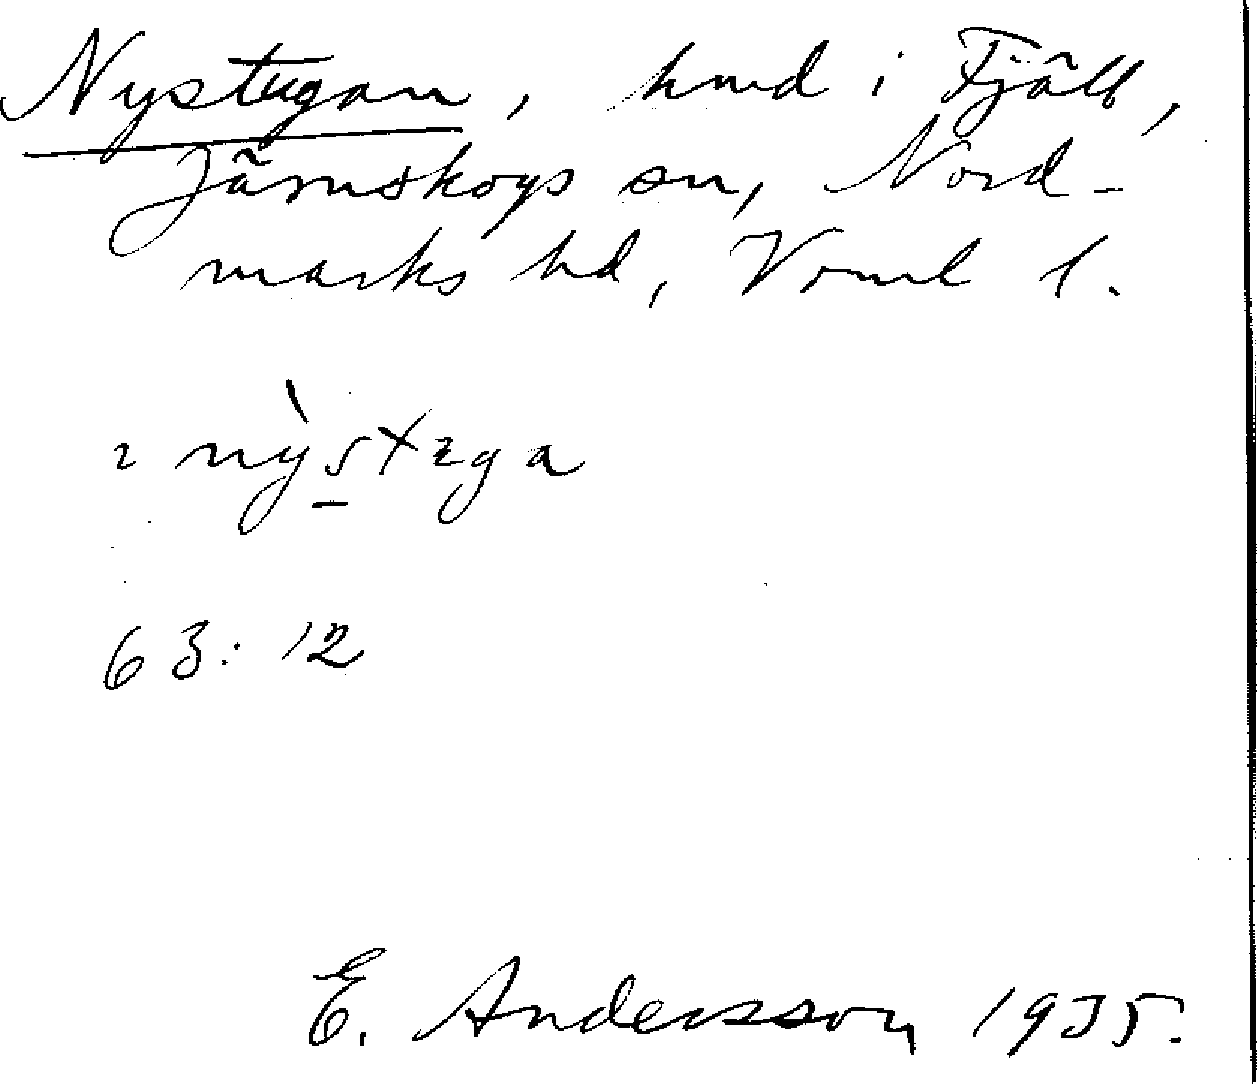 Nystugan, hmd i Fjäll,
Järnskogs sn, Nord-
marks hd, Vrml l.
ɩ nỳstɩga
63:12
E. Andersson 1935.